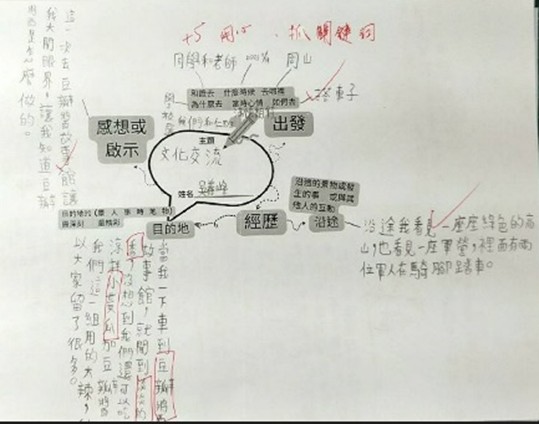 +5 用心、抓關鍵詞
同學和老師 岡山
和誰去 什麼時候 去哪裡
為什麼去 當時心情 如何去
搭車子
出發
感想或
啟示
這一次去豆瓣醬故事館讓
我大開眼界,讓我知道豆瓣
主題
文化交流
姓名
目的地的(景 人 事 時 地 物)
最深刻
目的地
經歷
沿途
沿途的景物或發
生的事 或與其
他人的互動
沿途我看見一座座綠色的高
山,也看見一座軍營,裡面有兩
位軍人在騎腳踏車。
當我一下車到豆瓣醬
故事館,就聞到
沒想到我們還可以吃
加豆瓣醬
我們這一組用的太辣,
以大家留了很多。